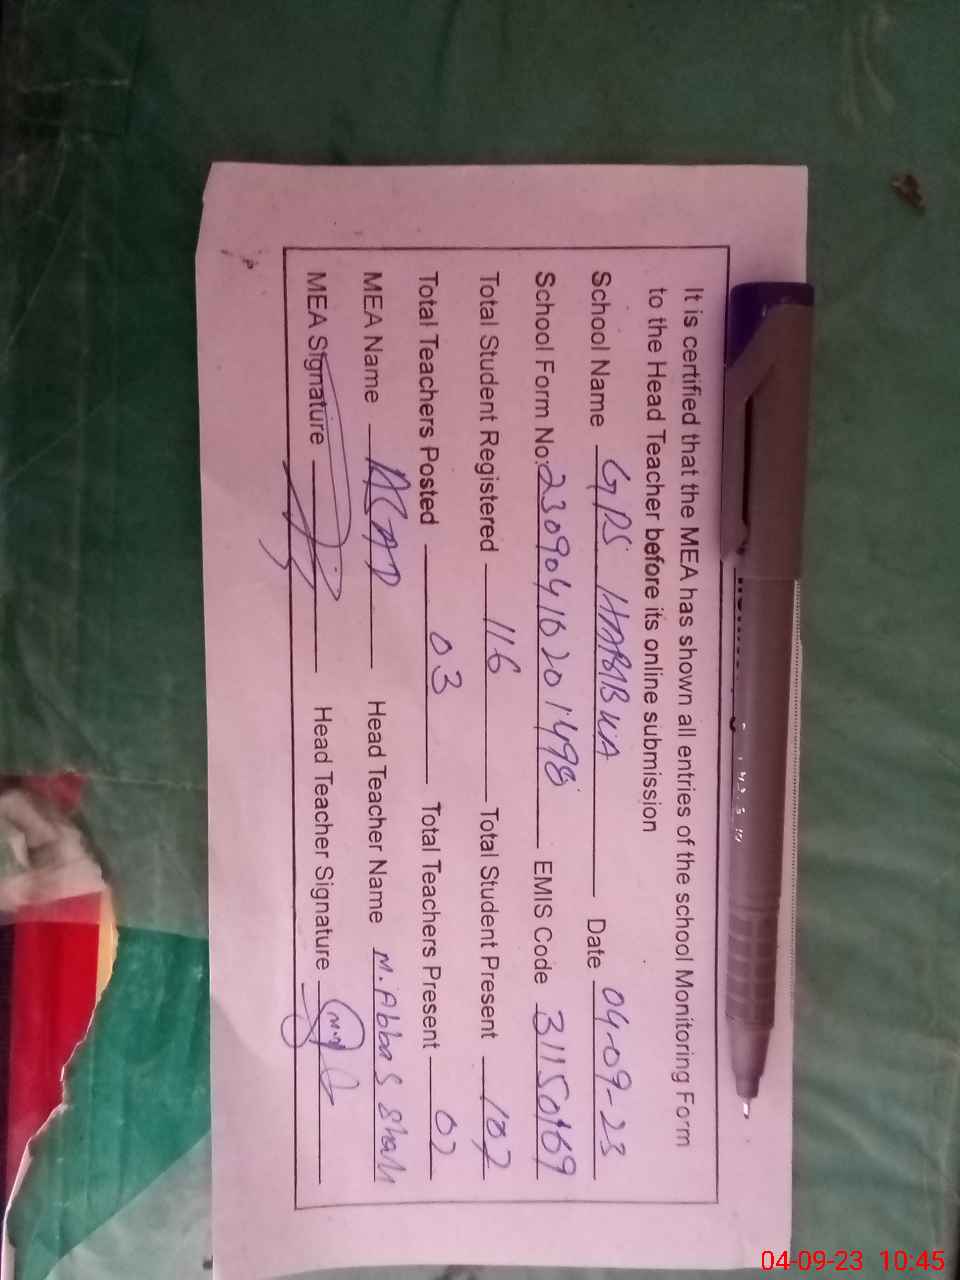 It is certified that the MEA has shown all entries of the school Monitoring Form
to the Head Teacher before its online submission
School Name GPS HABIB WA Date 04-09-23
School Form No: 23090416201498 EMIS Code 31150169
Total Student Registered 116 Total Student Present 107
Total Teachers Posted 03 Total Teachers Present 02
MEA Name ASAD Head Teacher Name M. Abbas Shah
MEA Signature Head Teacher Signature
04-09-23 10:45